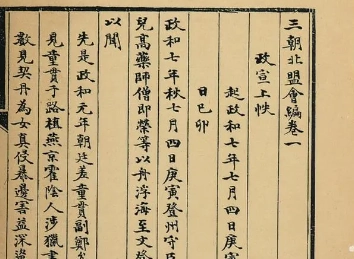 三朝北盟會編卷一
政宣上帙一
起政和七年七月四日庚寅
日己卯
政和七年秋七月四日庚寅登州守臣
兒高藥師僧即榮等以舟浮海至文登
以聞
先是政和元年朝廷差童貫副鄭允
見童貫于路植燕京霍陰人涉獵書
數見契丹為女真侵暴邊害益深盜